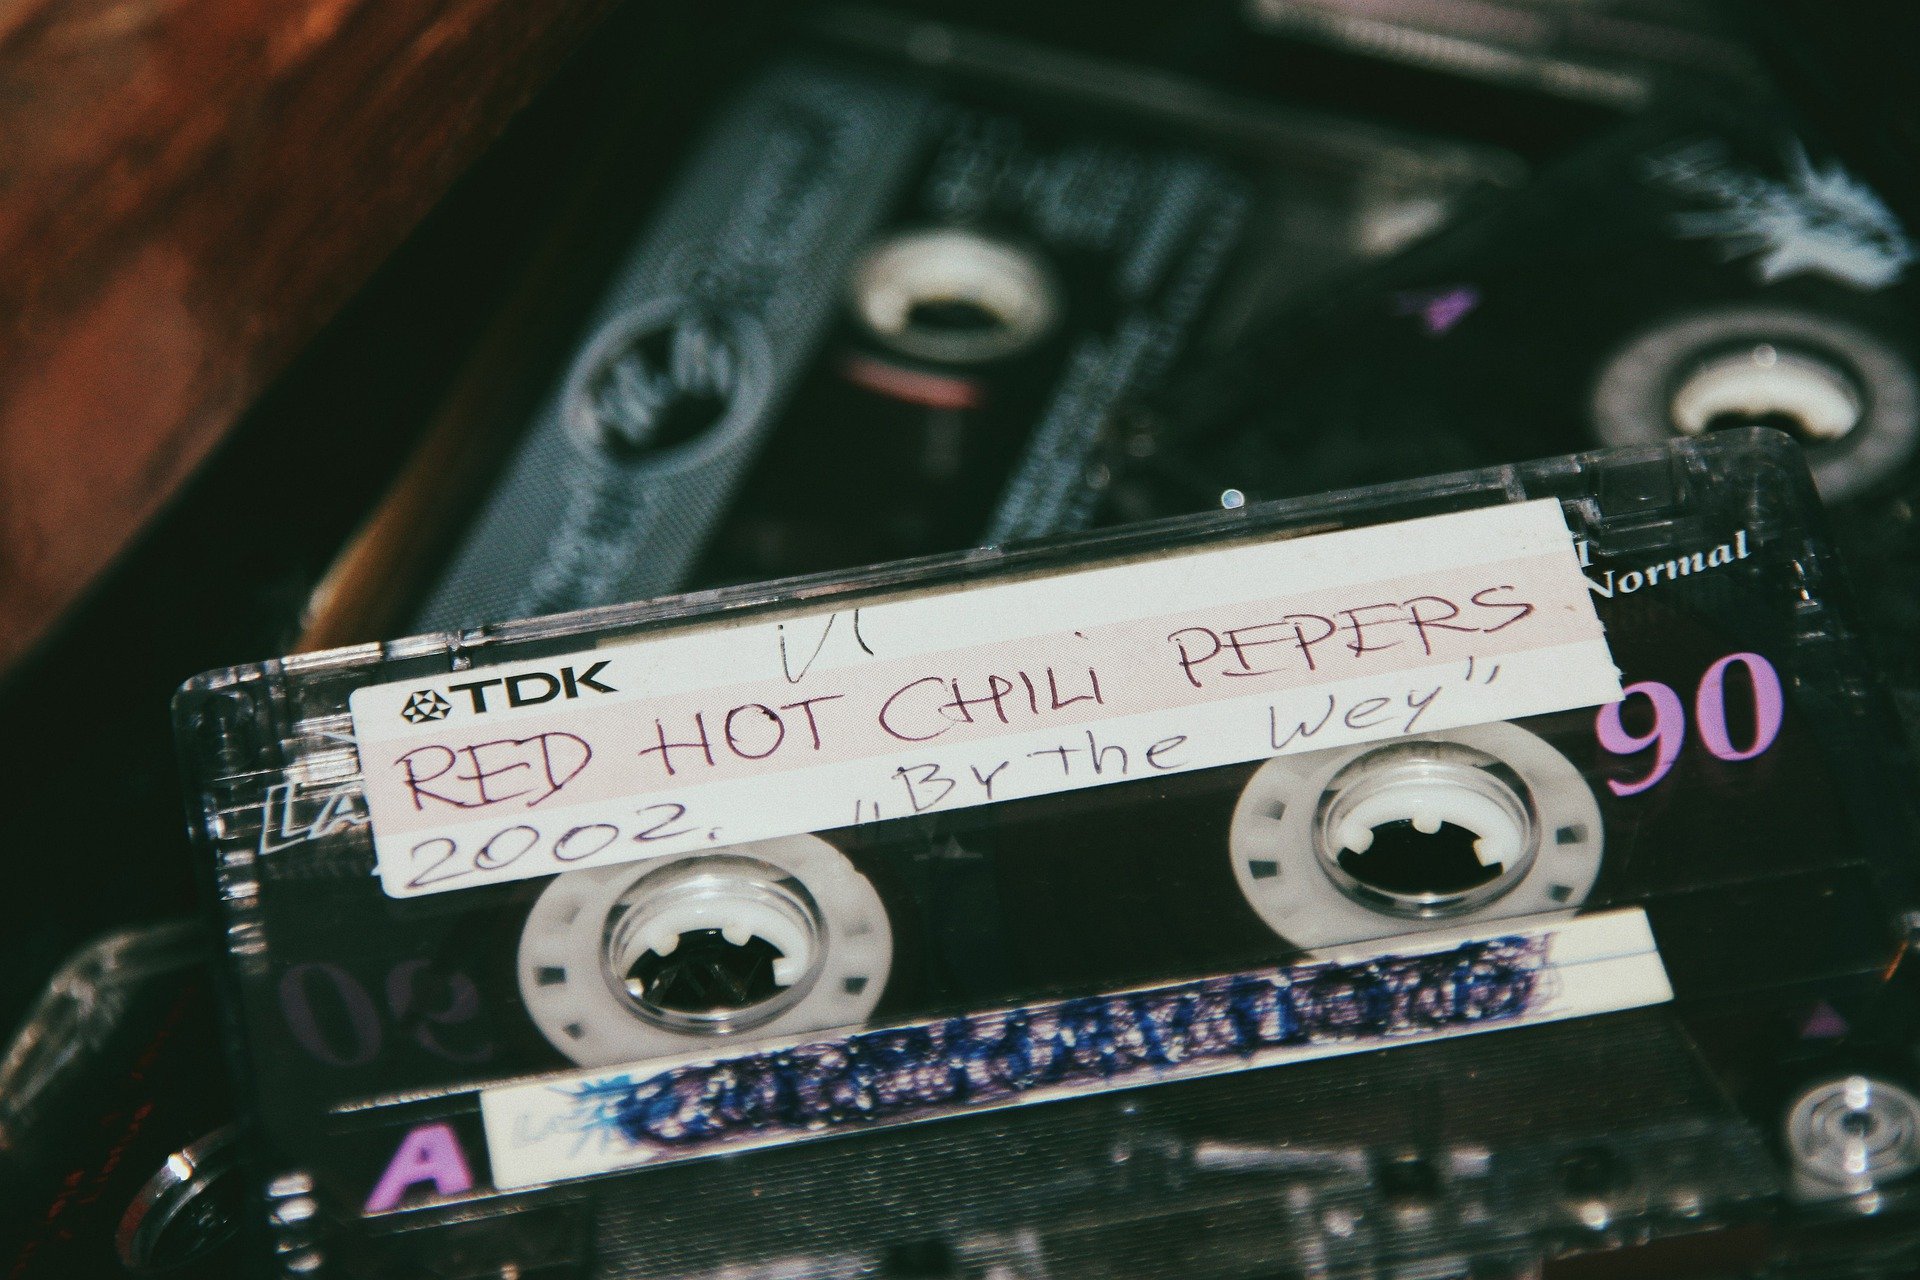 TDK
RED HOT CHILI PEPERS
2002. „By the Wey”
I
Normal
90
A